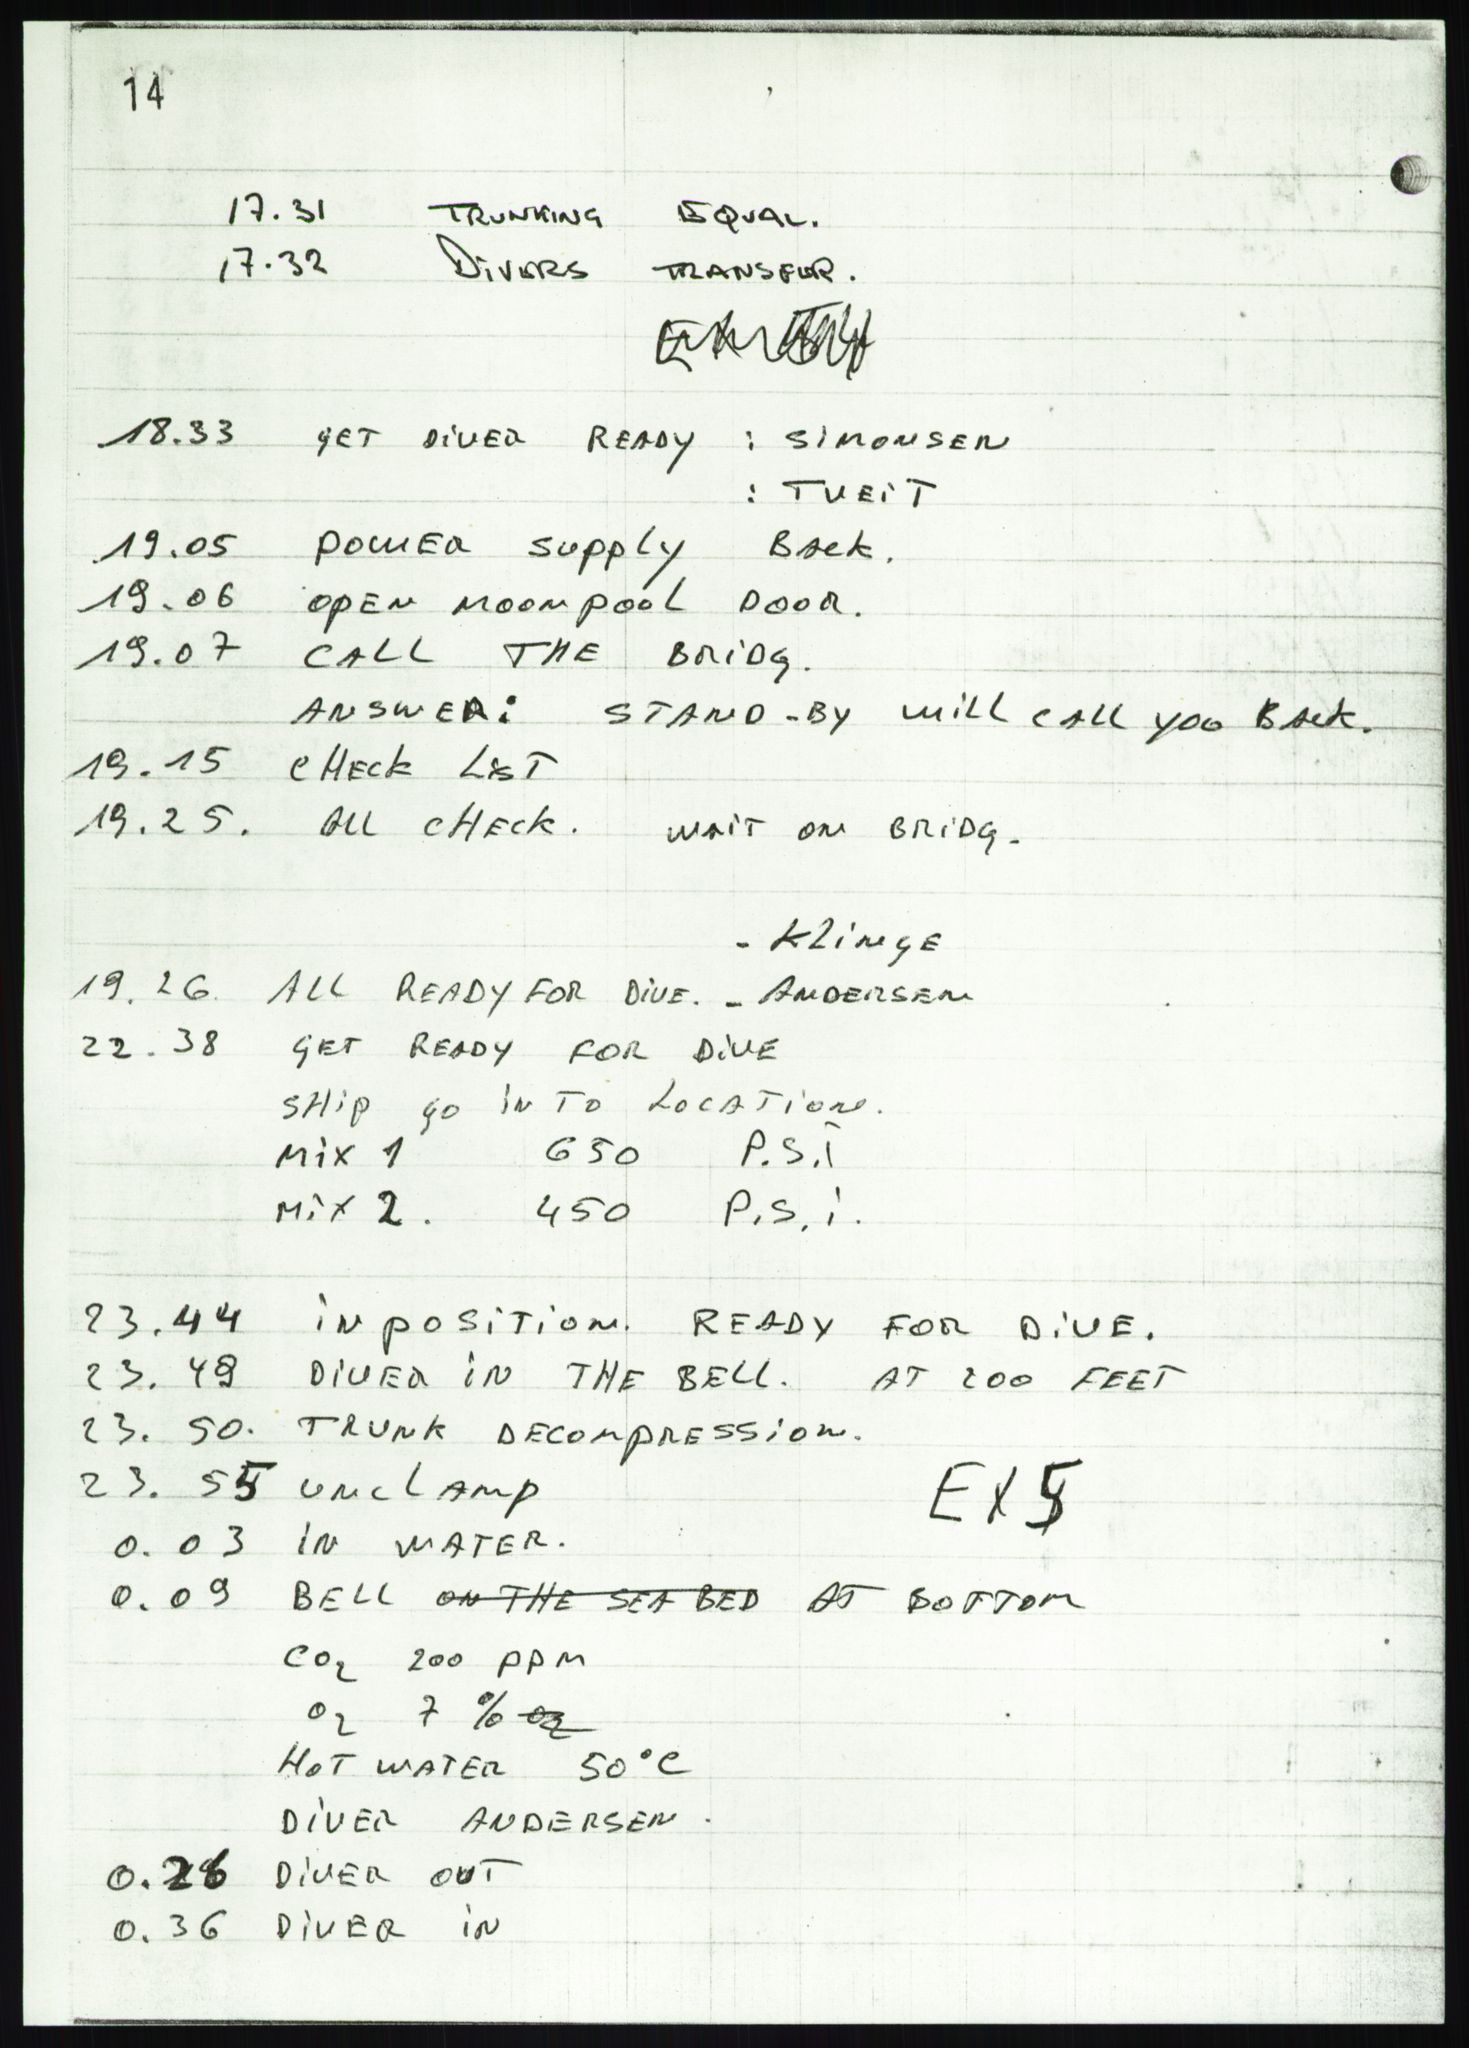 14
17.31 TRUNKING EQUAL.
17.32 DIVERS TRANSFER.
18.33 GET DIVER READY : SIMONSEN
: TVEIT
19.05 POWER SUPPLY BACK.
19.06 OPEN MOONPOOL DOOR.
19.07 CALL THE BRIDG.
ANSWER: STAND-BY WILL CALL YOU BACK.
19.15 CHECK LIST
19.25. ALL CHECK. WAIT ON BRIDG.
- KLINGE
19.26 ALL READY FOR DIVE. - ANDERSEN
22.38 GET READY FOR DIVE
SHIP GO IN TO LOCATION.
MIX 1 650 P.S.I
MIX 2. 450 P.S.I.
23.44 IN POSITION. READY FOR DIVE.
23.49 DIVER IN THE BELL. AT 200 FEET
23.50. TRUNK DECOMPRESSION.
23.55 UNCLAMP EX5
0.03 IN WATER.
0.09 BELL ON THE SEA BED AT BOTTOM
CO2 200 PPM
O2 7 % O2
HOT WATER 50°C
DIVER ANDERSEN.
0.26 DIVER OUT
0.36 DIVER IN